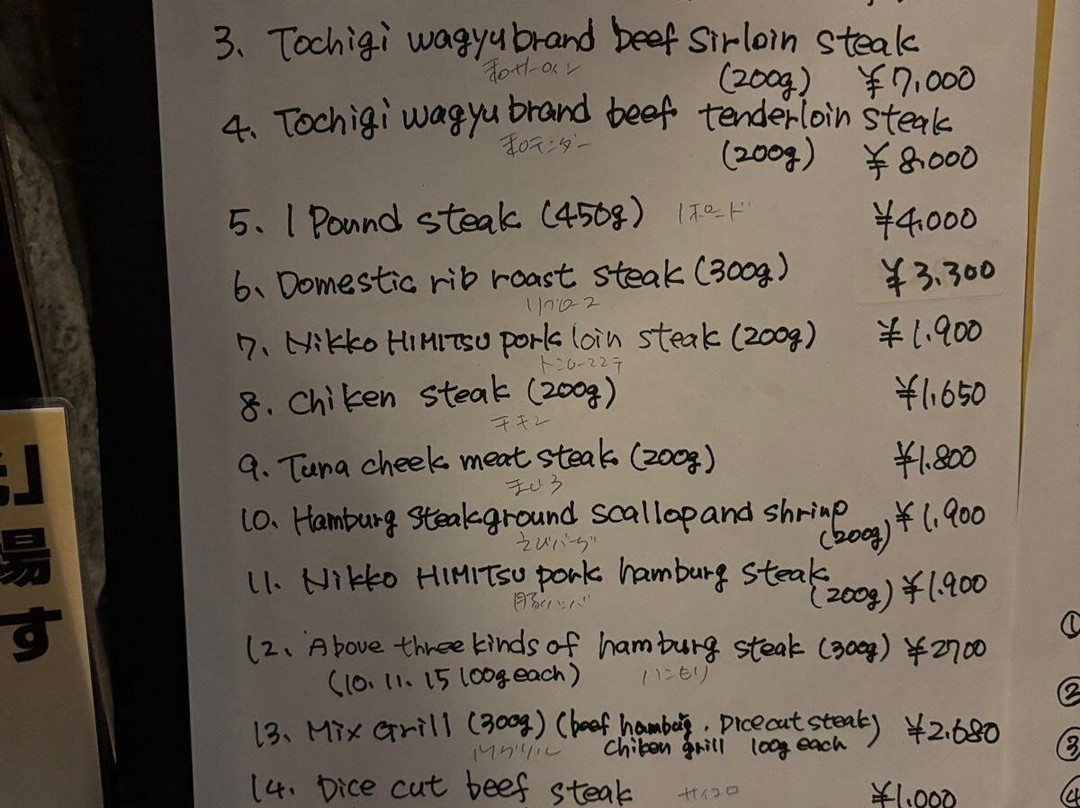 3. Tochigi wagyu brand beef Sirloin steak
和サーロイン
(200g) ¥7,000
4. Tochigi wagyu brand beef tenderloin steak
和テンダー
(200g) ¥8,000
5. 1 Pound steak (450g) 1ポンド ¥4,000
6. Domestic rib roast steak (300g) ¥3,300
リブロース
7. Nikko HIMITSU pork loin steak (200g) ¥1,900
8. Chiken steak (200g) ¥1,650
チキン
9. Tuna cheek meat steak (200g) ¥1,800
まぐろ
10. Hamburg steak ground scallop and shrimp (200g) ¥1,900
えびバーグ
11. Nikko HIMITSU pork hamburg steak (200g) ¥1,900
12. Above three kinds of hamburg steak (300g) ¥2700
(10. 11. 15 100g each)
13. Mix Grill (300g) (beef hamburg. Dice cut steak) ¥2,680
Chiken grill 100g each
14. Dice cut beef steak サイコロ ¥1,000
場
す
①
②
③
④